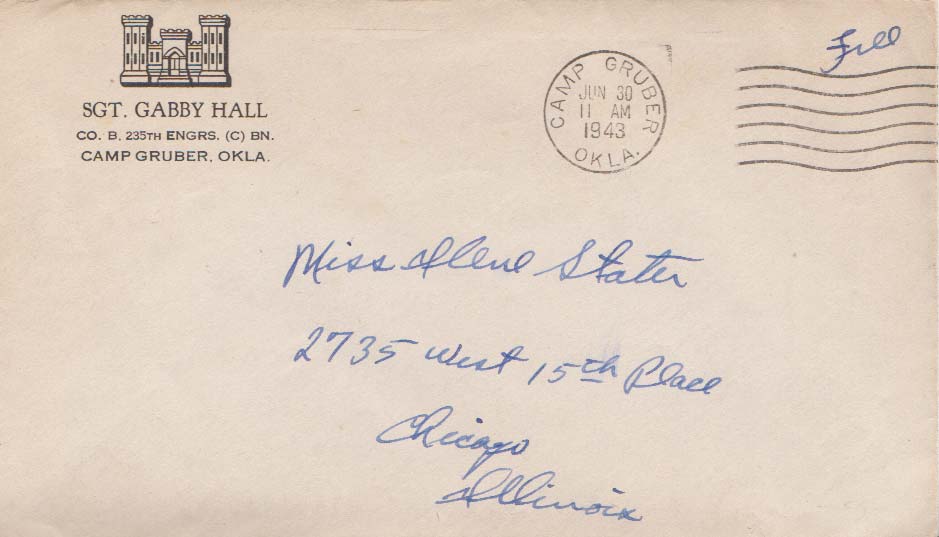 SGT. GABBY HALL
CO. B. 235TH ENGRS. (C) BN.
CAMP GRUBER, OKLA.
CAMP GRUBER
JUN 30
11 AM
1943
OKLA.
Free
Miss Ilene Slater
2735 West 15th Place
Chicago
Illinois